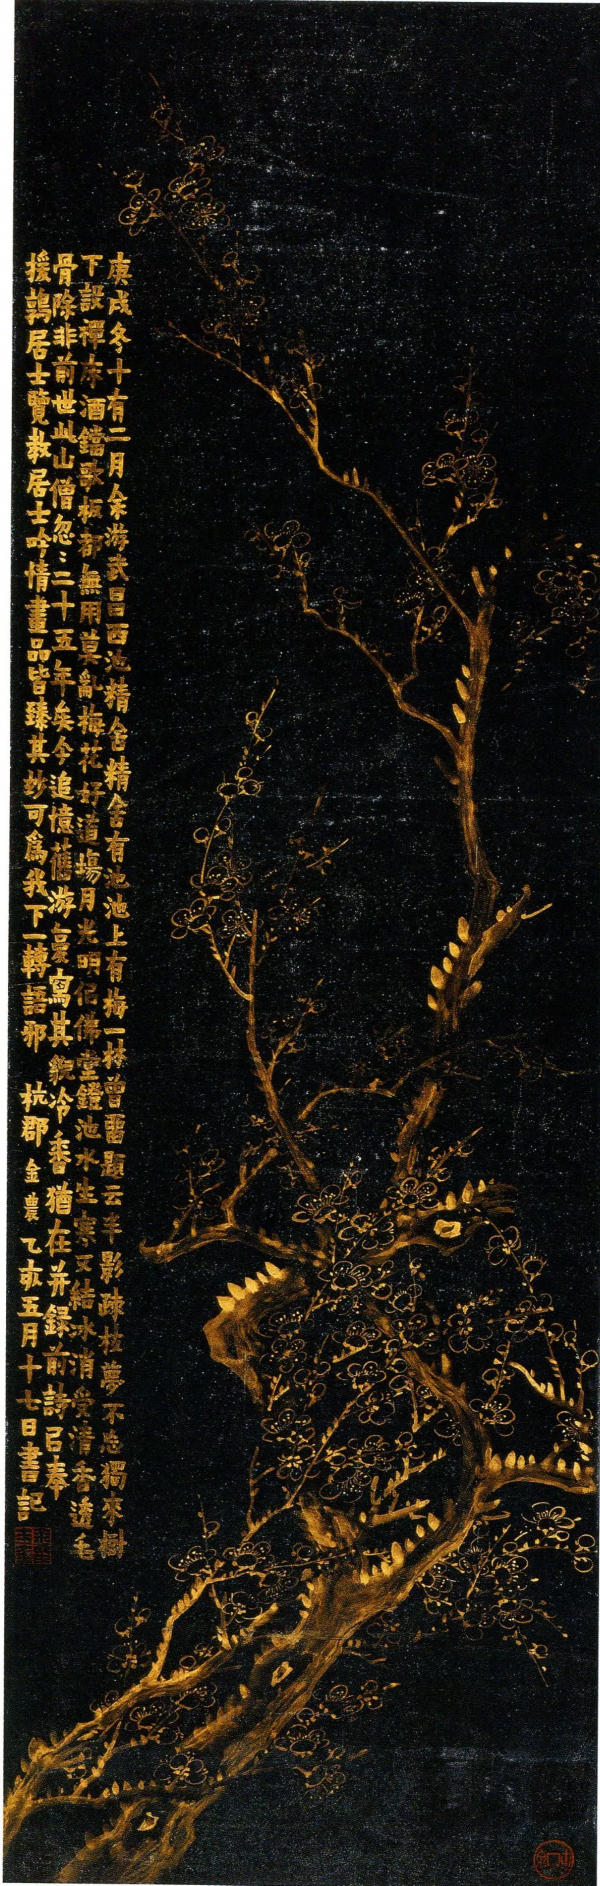 庚戌冬十有二月余游武昌西池精舍精舍有池池上有梅一林曾留題云半影疎枝夢不忘獨來樹
下設禪床酒鐺歌板都無用莫亂梅花好道場月光明佀佛堂鐙池水生寒又結冰消受清香透毛
骨除非前世此山僧忽〻二十五年矣今追憶舊游憂寫其貌冷香猶在并録前詩㠯奉
援鶉居士覽教居士吟情畫品皆臻其妙可為我下一轉語邪 杭郡金農乙亥五月十七日書記